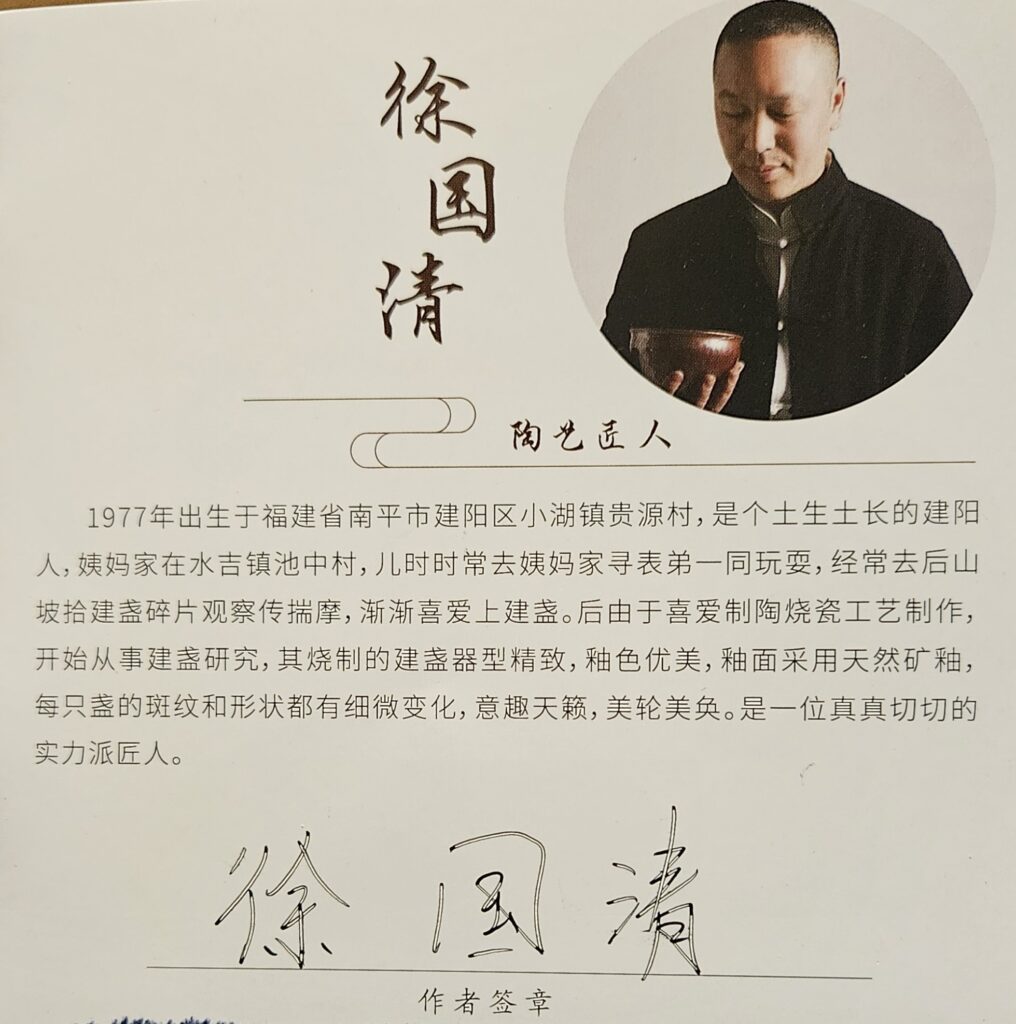 徐国清
陶艺匠人
1977年出生于福建省南平市建阳区小湖镇贵源村，是个土生土长的建阳
人，姨妈家在水吉镇池中村，儿时时常去姨妈家寻表弟一同玩耍，经常去后山
坡拾建盏碎片观察传揣摩，渐渐喜爱上建盏。后由于喜爱制陶烧瓷工艺制作，
开始从事建盏研究，其烧制的建盏器型精致，釉色优美，釉面采用天然矿釉，
每只盏的斑纹和形状都有细微变化，意趣天籁，美轮美奂。是一位真真切切的
实力派匠人。
徐国清
作者签章